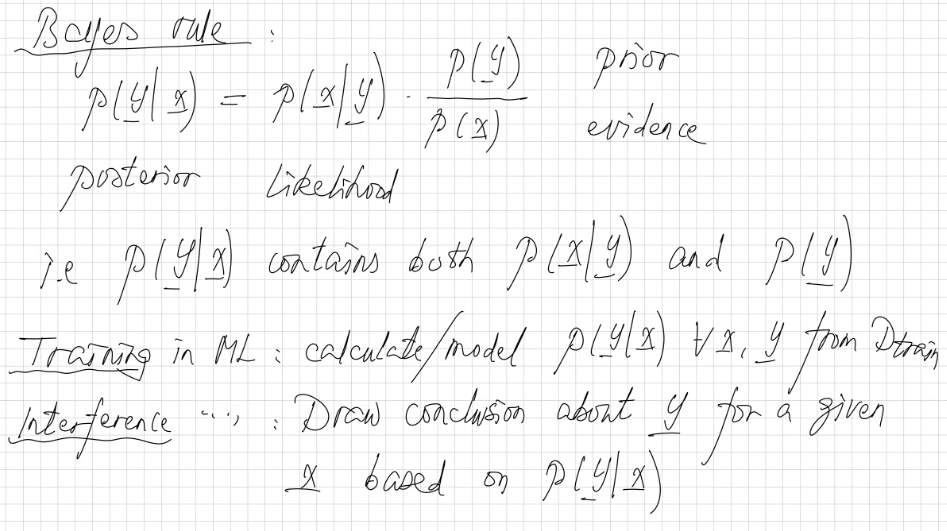 Bayes rule :
p(y|x) = p(x|y) · p(y)/p(x) prior evidence
posterior likelihood
i.e p(y|x) contains both p(x|y) and p(y)
Training in ML : calculate/model p(y|x) ∀x, y from Dtrain
Interference "" : Draw conclusion about y for a given
x based on p(y|x)